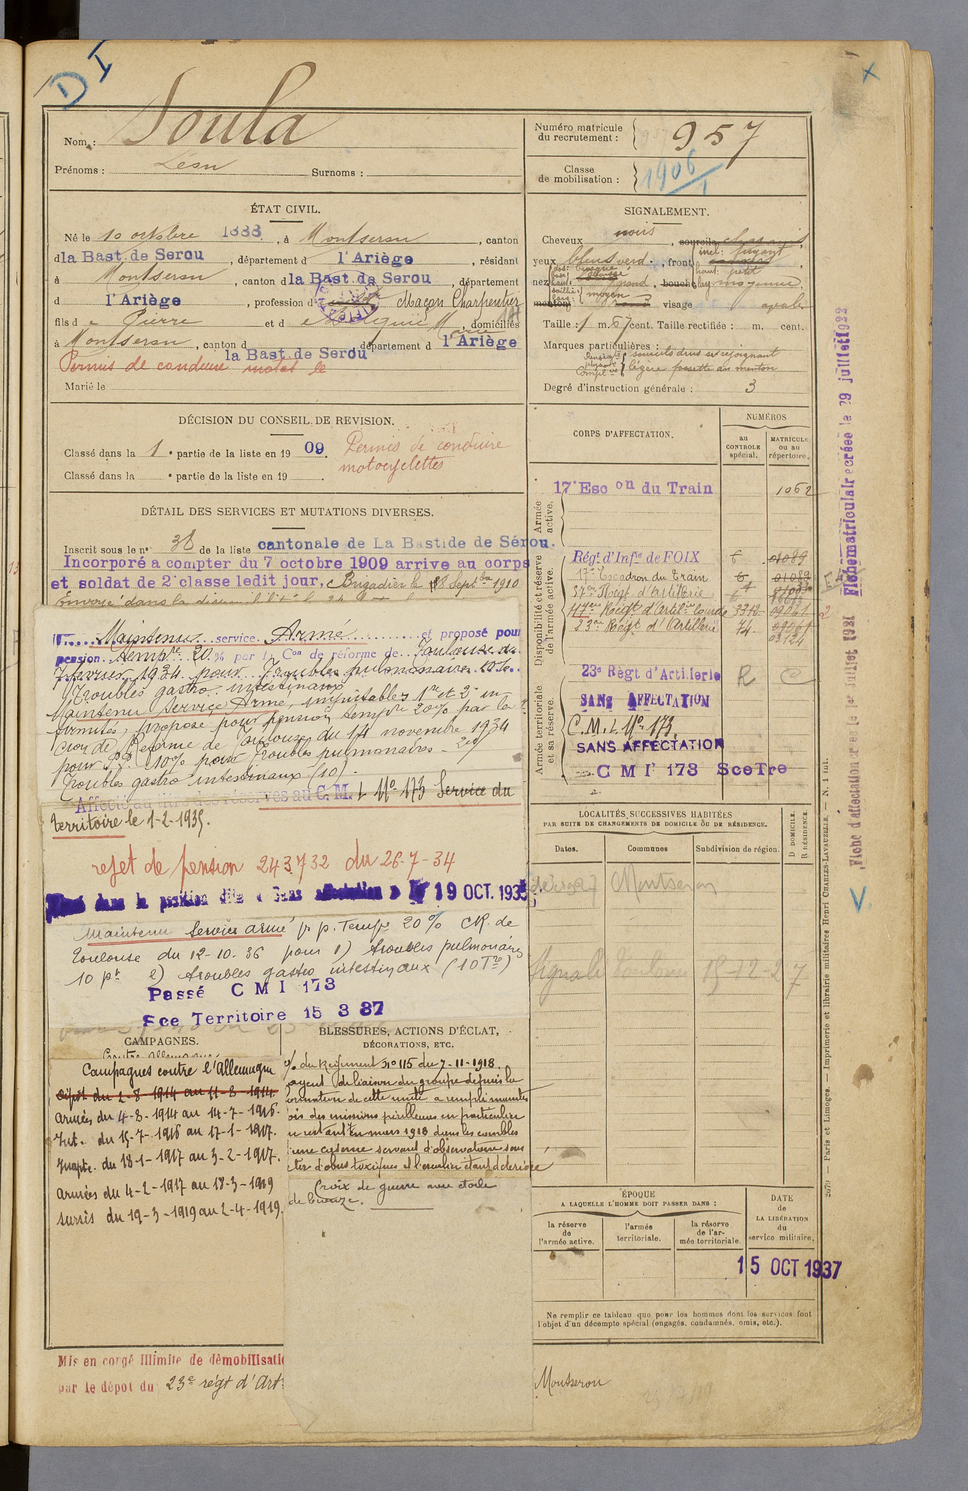 D I
Nom : Soula
Prénoms : Léon Surnoms :
Numéro matricule du recrutement : 957
Classe de mobilisation : 1906/1
ÉTAT CIVIL.
Né le 10 octobre 1888, à Montseron, canton
d la Bast. de Serou, département d l'Ariège, résidant
à Montseron, canton d la Bast. de Serou, département
d l'Ariège, profession d maçon Charpentier
fils de Pierre et de M Marie, domiciliés
à Montseron, canton d la Bast. de Serou département d l'Ariège
Permis de conduire motos le
Marié le
SIGNALEMENT.
Cheveux noirs
yeux bleus verd., front incl: fuyant
haut: petit
nez moyen bouche moyenne
menton visage ovale
Taille : 1 m. 67 cent. Taille rectifiée : m. cent.
Marques particulières :
sourcils drus se rejoignant
légère fossette au menton
Degré d'instruction générale : 3
DÉCISION DU CONSEIL DE REVISION.
Classé dans la 1e partie de la liste en 1909.
Classé dans la e partie de la liste en 19
Permis de conduire
motocyclettes
DÉTAIL DES SERVICES ET MUTATIONS DIVERSES.
Inscrit sous le n° 38 de la liste cantonale de La Bastide de Sérou.
Incorporé a compter du 7 octobre 1909 arrive au corps
et soldat de 2e classe ledit jour, Brigadier le 18 Septbre 1910
Maintenu service Armé et proposé pour
pension tempre 20 % par la Con de réforme de Toulouse du
7 février 1934 pour Troubles pulmonaires 10%
Troubles gastro intestinaux
Maintenu Service Armé, imputables 1re et 2e in-
firmités, proposé pour pension tempre 20% par la
Con de Réforme de Toulouse du 14 novembre 1934
pour 10% pour Troubles pulmonaires - 2°)
Troubles gastro intestinaux (10).
Affecté au titre des réserves au C.M.I. N° 173 Service du
territoire le 1-2-1935.
rejet de pension 243732 du 26-7-34
Placé dans la position dite « Sans affectation » le 19 OCT. 1935
Maintenu Service armé p. p. Tempre 20% CR. de
Toulouse du 12-10-36 pour 1) troubles pulmonaires
10 pt 2) troubles gastro intestinaux (10 )
Passé C M I 173
Sce Territoire 15 3 37
CAMPAGNES.
Campagnes contre l'Allemagne
Dépôt du 2-8-1914 au 11-8-1914
Armées du 4-8-1914 au 14-7-1916.
Int. du 15-7-1916 au 17-1-1917.
Inapte. du 18-1-1917 au 3-2-1917.
Armées du 4-2-1917 au 18-3-1919
Sursis du 19-3-1919 au 2-4-1919.
BLESSURES, ACTIONS D'ÉCLAT,
DÉCORATIONS, ETC.
du Régiment N° 115 du 7-11-1918.
agent de liaison du groupe depuis la
formation de cette unité a rempli maintes
fois des missions périlleuses en particulier
en restant en mars 1918 dans les combles
d'une caserne servant d'observatoire sous
tir d'obus toxiques et l'escalier étant détérioré
Croix de guerre avec étoile
de bronze.
Mis en congé illimité de démobilisatio
par le dépôt du 23e régt d'Art
CORPS D'AFFECTATION.
NUMÉROS
AU CONTROLE spécial.
MATRICULE OU AU répertoire.
Armée active.
17e Escon du Train 1062
Disponibilité et réserve de l'armée active.
Régt d'Infie de FOIX 6 01089
17e Escadron du Train 6 01089
57e Régt d'Artillerie
117e Régt d'Artie Lourde
23e Régt d'Artillerie 74
Armée territoriale et sa réserve.
23e Règt d'Artillerie R C
SANS AFFECTATION
C.M.I. N° 173
SANS AFFECTATION
C M I 173 Sce Tre
LOCALITÉS SUCCESSIVES HABITÉES
PAR SUITE DE CHANGEMENTS DE DOMICILE OU DE RÉSIDENCE.
Dates. Communes Subdivision de région. D DOMICILE. R RÉSIDENCE.
Montseron
Signalé Toulouse 15-12-27
ÉPOQUE
A LAQUELLE L'HOMME DOIT PASSER DANS :
la réserve de l'armée active.
l'armée territoriale.
la réserve de l'armée territoriale.
DATE de LA LIBÉRATION du service militaire.
15 OCT 1937
Ne remplir ce tableau que pour les hommes dont les services font
l'objet d'un décompte spécial (engagés, condamnés, omis, etc.).
Montseron
Fiche matriculaire créée le 29 juillet 1922
Fiche d'affectation créée le 1er juillet 1921
2679 — Paris et Limoges. — Imprimerie et librairie militaires Henri CHARLES-LAVAUZELLE. — N. 1 int.